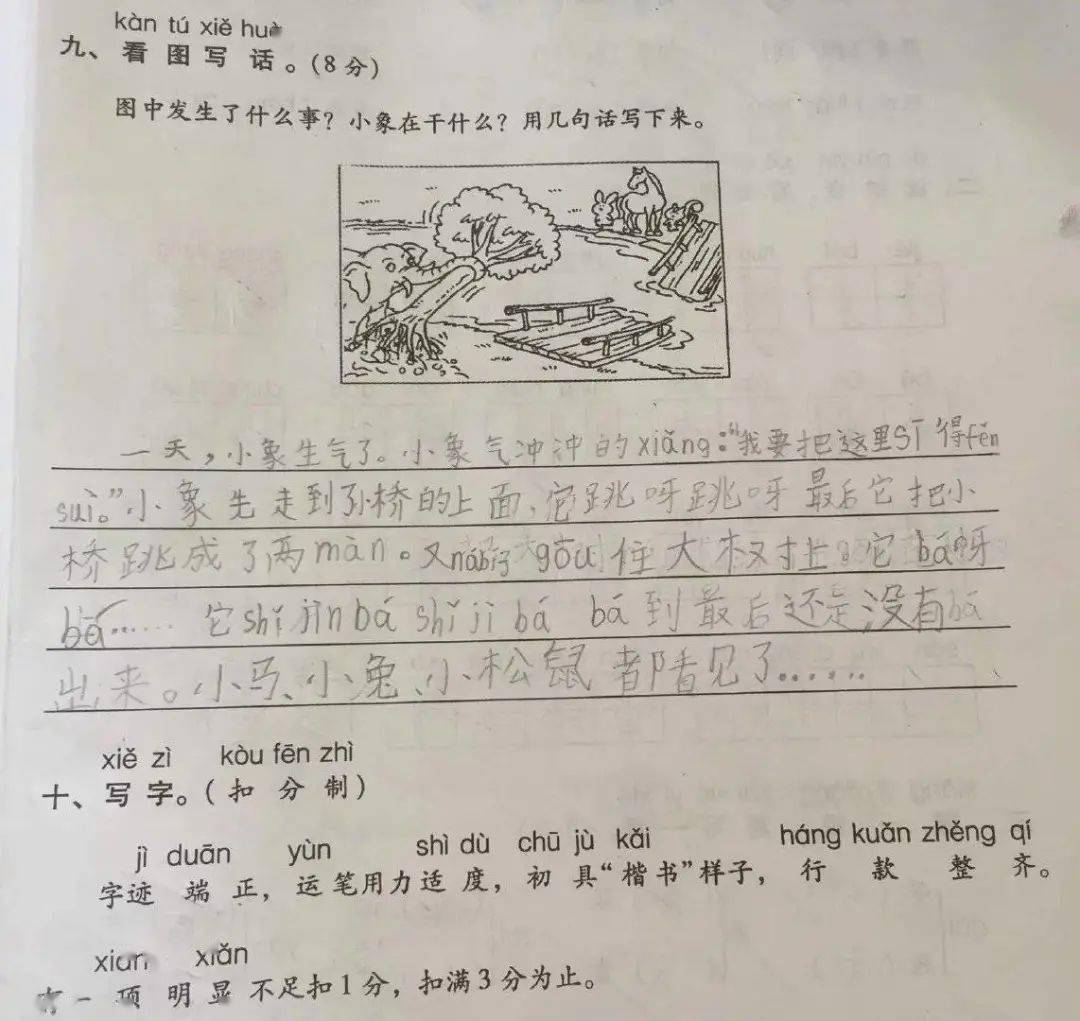 kàn tú xiě huà
九、看图写话。(8分)
图中发生了什么事？小象在干什么？用几句话写下来。
一天，小象生气了。小象气冲冲的xiǎng：“我要把这里sī得fěn
suì。”小象先走到小桥的上面，它跳呀跳呀最后它把小
桥跳成了两màn。又 gōu住大树 。它bá呀
bá……它shǐ jìn bá shǐ jì bá bá到最后还是没有bá
出来。小马、小兔、小松鼠都看见了……
xiě zì kòu fēn zhì
十、写字。(扣分制)
jì duān yùn shì dù chū jù kǎi háng kuǎn zhěng qí
字迹端正，运笔用力适度，初具“楷书”样子，行款整齐。
xiǎn
一项明显不足扣1分，扣满3分为止。